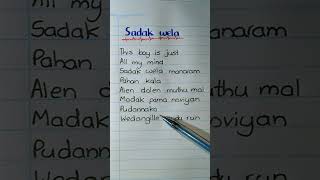 Sadak wela
This boy is just
All my mind
Sadak wela manaram
Pahan kala
Alen dolen muthu mal
Madak pama naviyan
Pudannako
Wedangille run